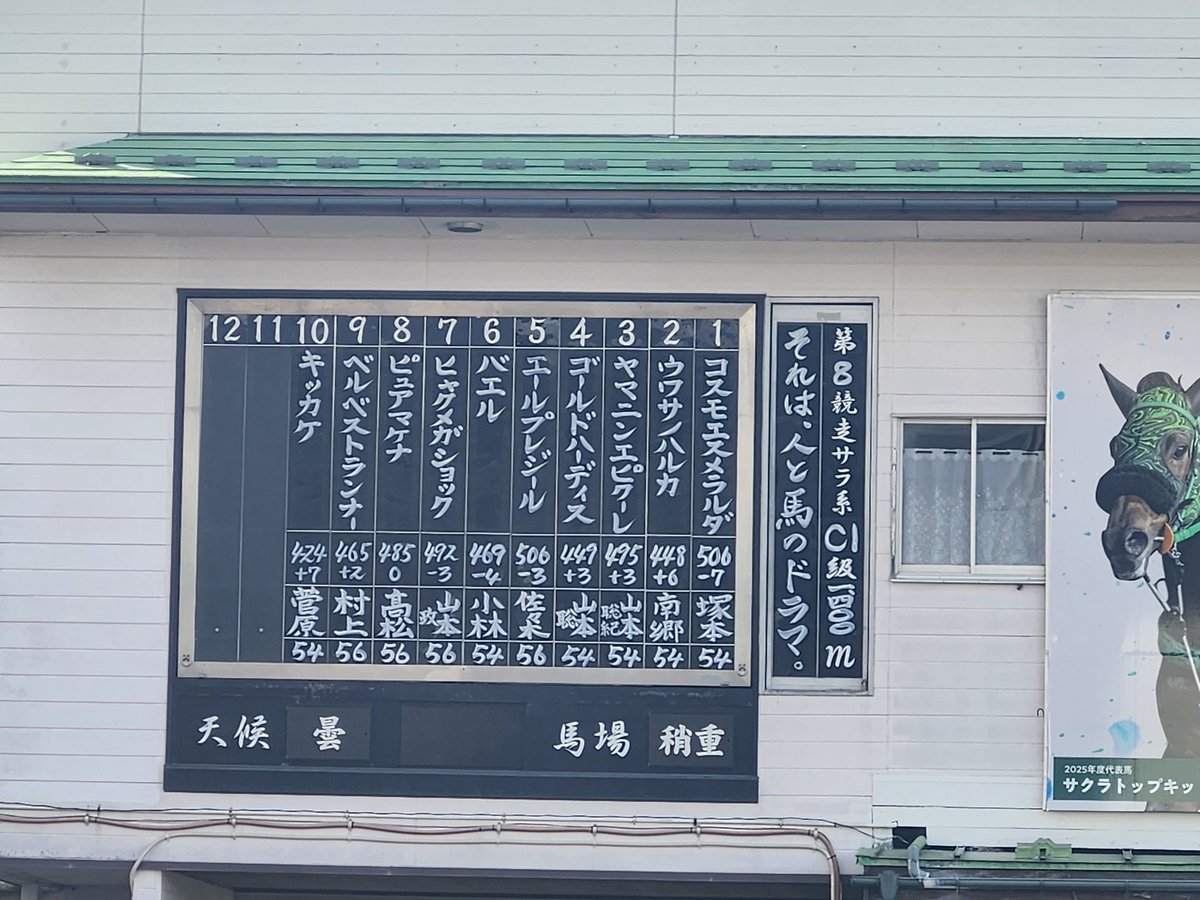 第8競走サラ系C1級一四〇〇m
それは、人と馬のドラマ。
1 コスモエスメラルダ 506 -7 塚本 54
2 ウワサノハルカ 448 +6 南郷 54
3 ヤマニンエピクーレ 495 +3 山本聡紀 54
4 ゴールドハーディス 449 +3 山本聡 54
5 エールプレジール 506 -3 佐々木 56
6 バエル 469 -4 小林 54
7 ヒメグメガショック 492 -3 山本政 56
8 ピュアマケナ 485 0 高松 56
9 ベルベストランナー 465 +2 村上 56
10 キッカケ 424 +7 菅原 54
11
12
天候 曇
馬場 稍重
2025年度代表馬
サクラトップキッ